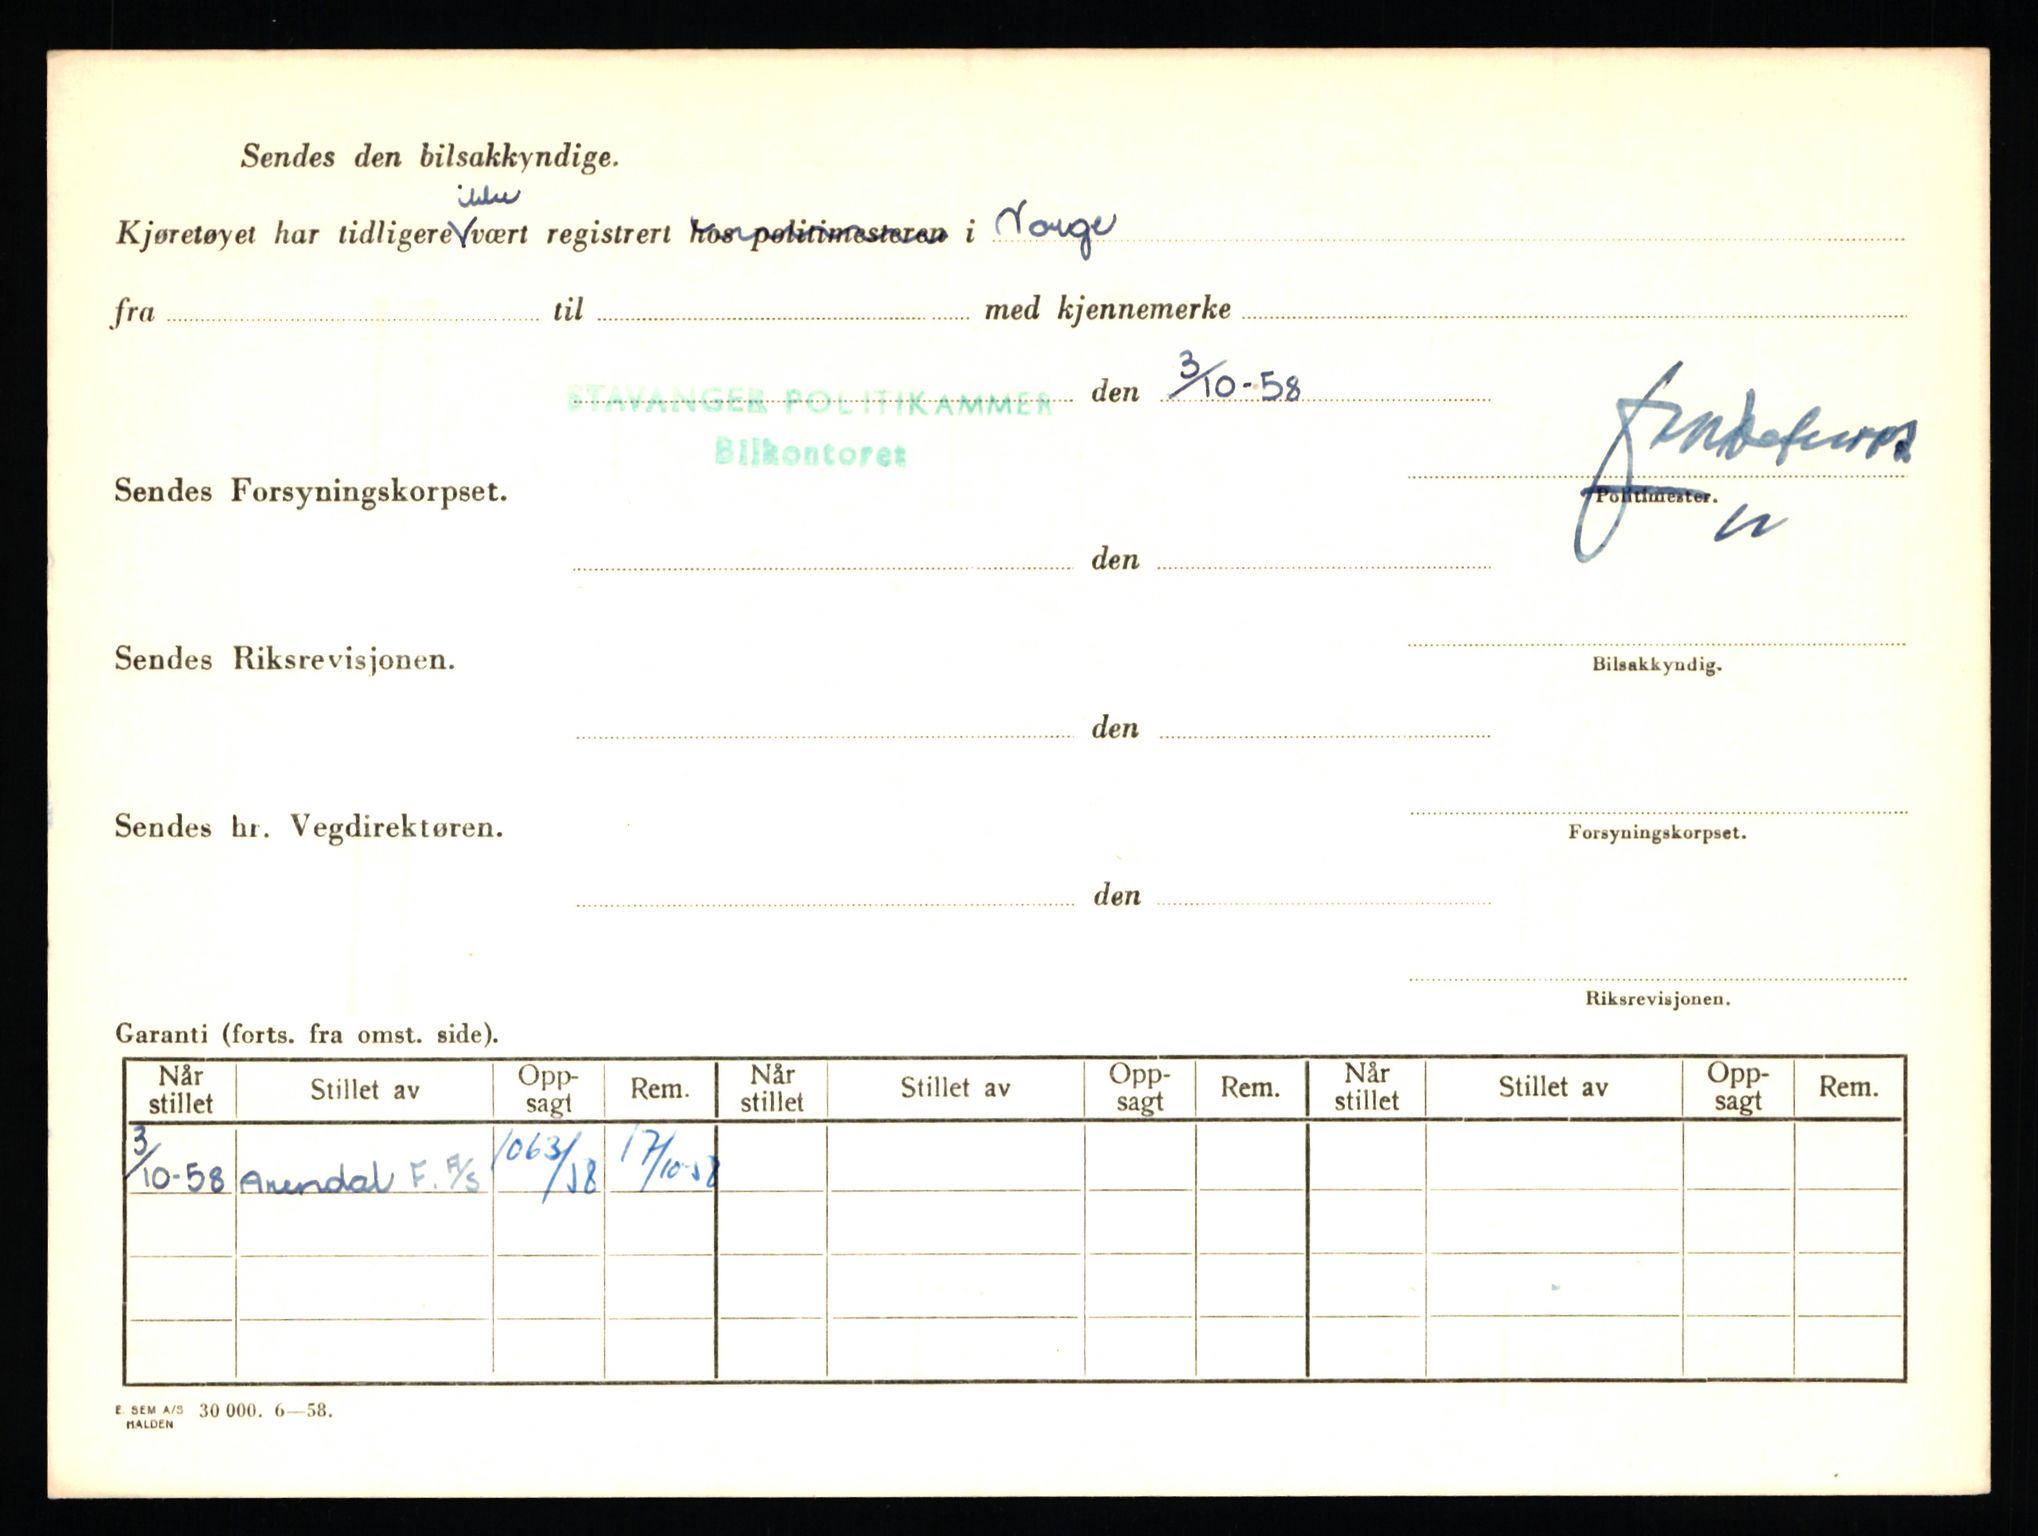 Sendes den bilsakkyndige.
ikke
Kjøretøyet har tidligere vært registrert hos politimesteren i Norge
fra til med kjennemerke
STAVANGER POLITIKAMMER den 3/10-58
Bilkontoret
Sendes Forsyningskorpset.
Politimester.
den
Sendes Riksrevisjonen.
Bilsakkyndig.
den
Sendes hr. Vegdirektøren.
Forsyningskorpset.
den
Riksrevisjonen.
Garanti (forts. fra omst. side).
Når stillet Stillet av Opp-sagt Rem. Når stillet Stillet av Opp-sagt Rem. Når stillet Stillet av Opp-sagt Rem.
3/10-58 Arendal F. A/S 1063/58 17/10-58
E. SEM A/S 30 000. 6—58.
HALDEN